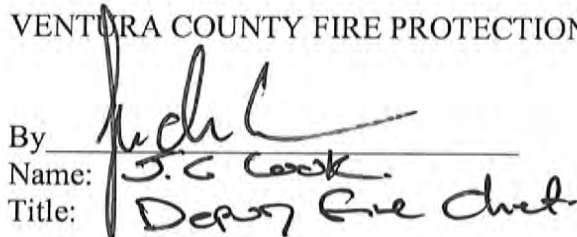 VENTURA COUNTY FIRE PROTECTION
By
Name: J. C Cook.
Title: Deputy Fire Chief